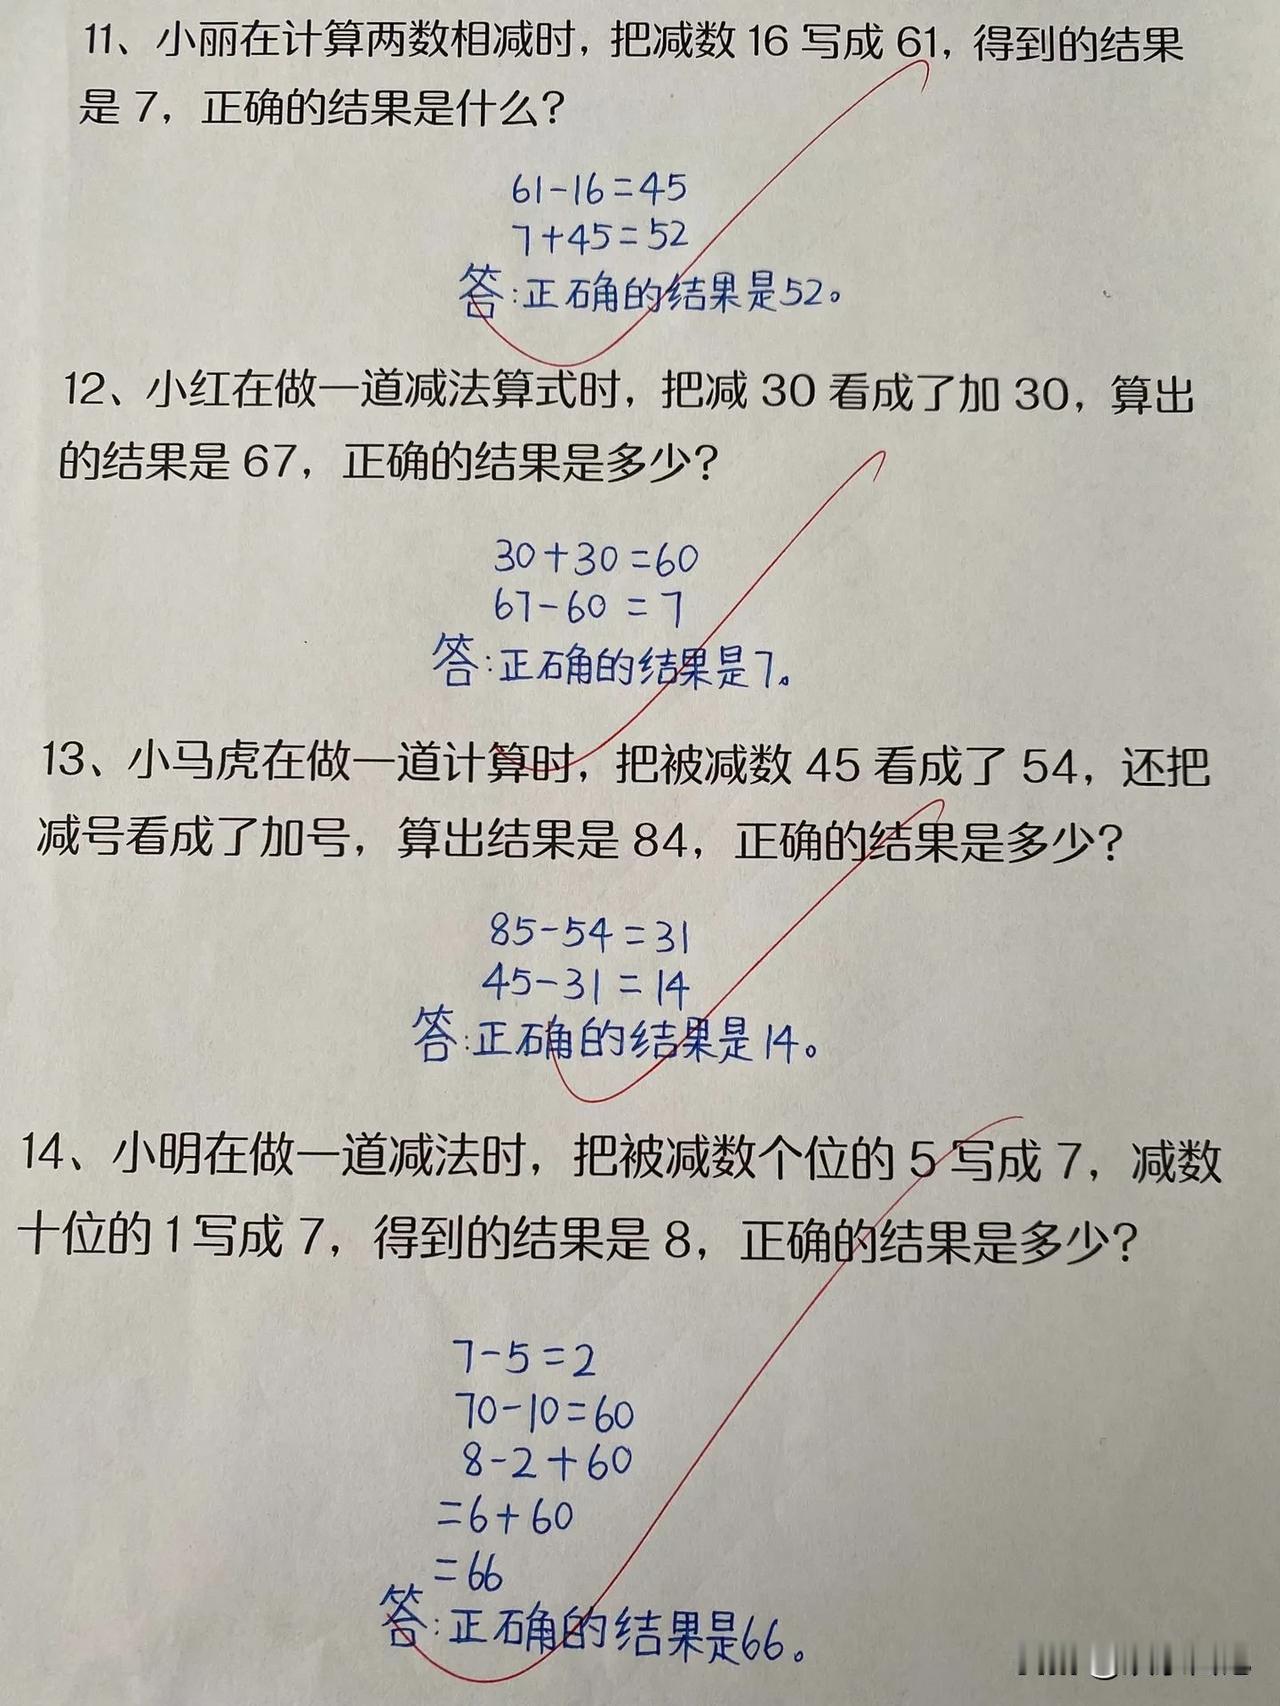 11、小丽在计算两数相减时，把减数 16 写成 61，得到的结果
是 7，正确的结果是什么？
61-16=45
7+45=52
答:正确的结果是52。
12、小红在做一道减法算式时，把减 30 看成了加 30，算出
的结果是 67，正确的结果是多少？
30+30=60
67-60=7
答:正确的结果是7。
13、小马虎在做一道计算时，把被减数 45 看成了 54，还把
减号看成了加号，算出结果是 84，正确的结果是多少？
85-54=31
45-31=14
答:正确的结果是14。
14、小明在做一道减法时，把被减数个位的 5 写成 7，减数
十位的 1 写成 7，得到的结果是 8，正确的结果是多少？
7-5=2
70-10=60
8-2+60
=6+60
=66
答:正确的结果是66。